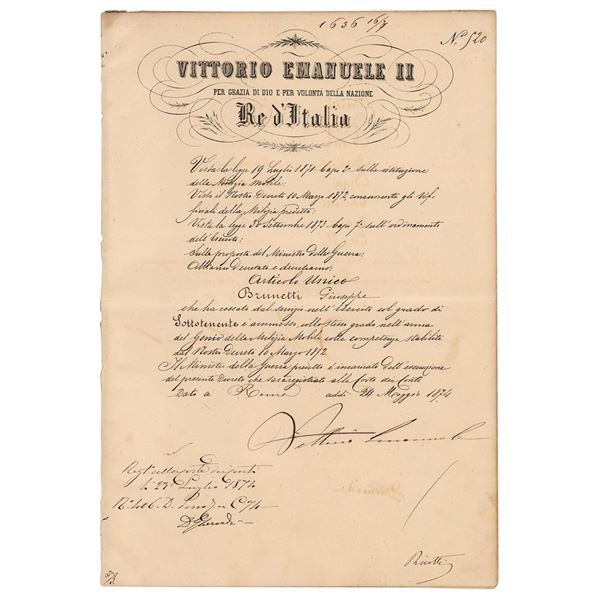 1636 16/7
N.º 520
VITTORIO EMANUELE II
PER GRAZIA DI DIO E PER VOLONTÀ DELLA NAZIONE
Re d'Italia
Vista la legge 19 Luglio 1871 Capo 2º sulla istituzione
della Milizia Mobile;
Visto il Nostro Decreto 10 Marzo 1872, concernente gli Uf-
fiziali della Milizia predetta;
Vista la legge 30 Settembre 1873 Capo 7º sull'ordinamento
dell'Esercito;
Sulla proposta del Ministro della Guerra;
Abbiamo Decretato e decretiamo:
Articolo Unico
Brunetti Giuseppe
che ha cessato dal servizio nell'Esercito col grado di
Sottotenente è ammesso collo stesso grado nell'arma
del Genio della Milizia Mobile colle competenze stabilite
dal Nostro Decreto 10 Marzo 1872
Il Ministro della Guerra predetto è incaricato dell'esecuzione
del presente Decreto che sarà registrato alla Corte dei Conti
Dato a Roma addì 24 Maggio 1874
Vittorio Emanuele
Regt. alla Corte dei Conti
li 23 Luglio 1874
N.º 406. D.
Ricotti